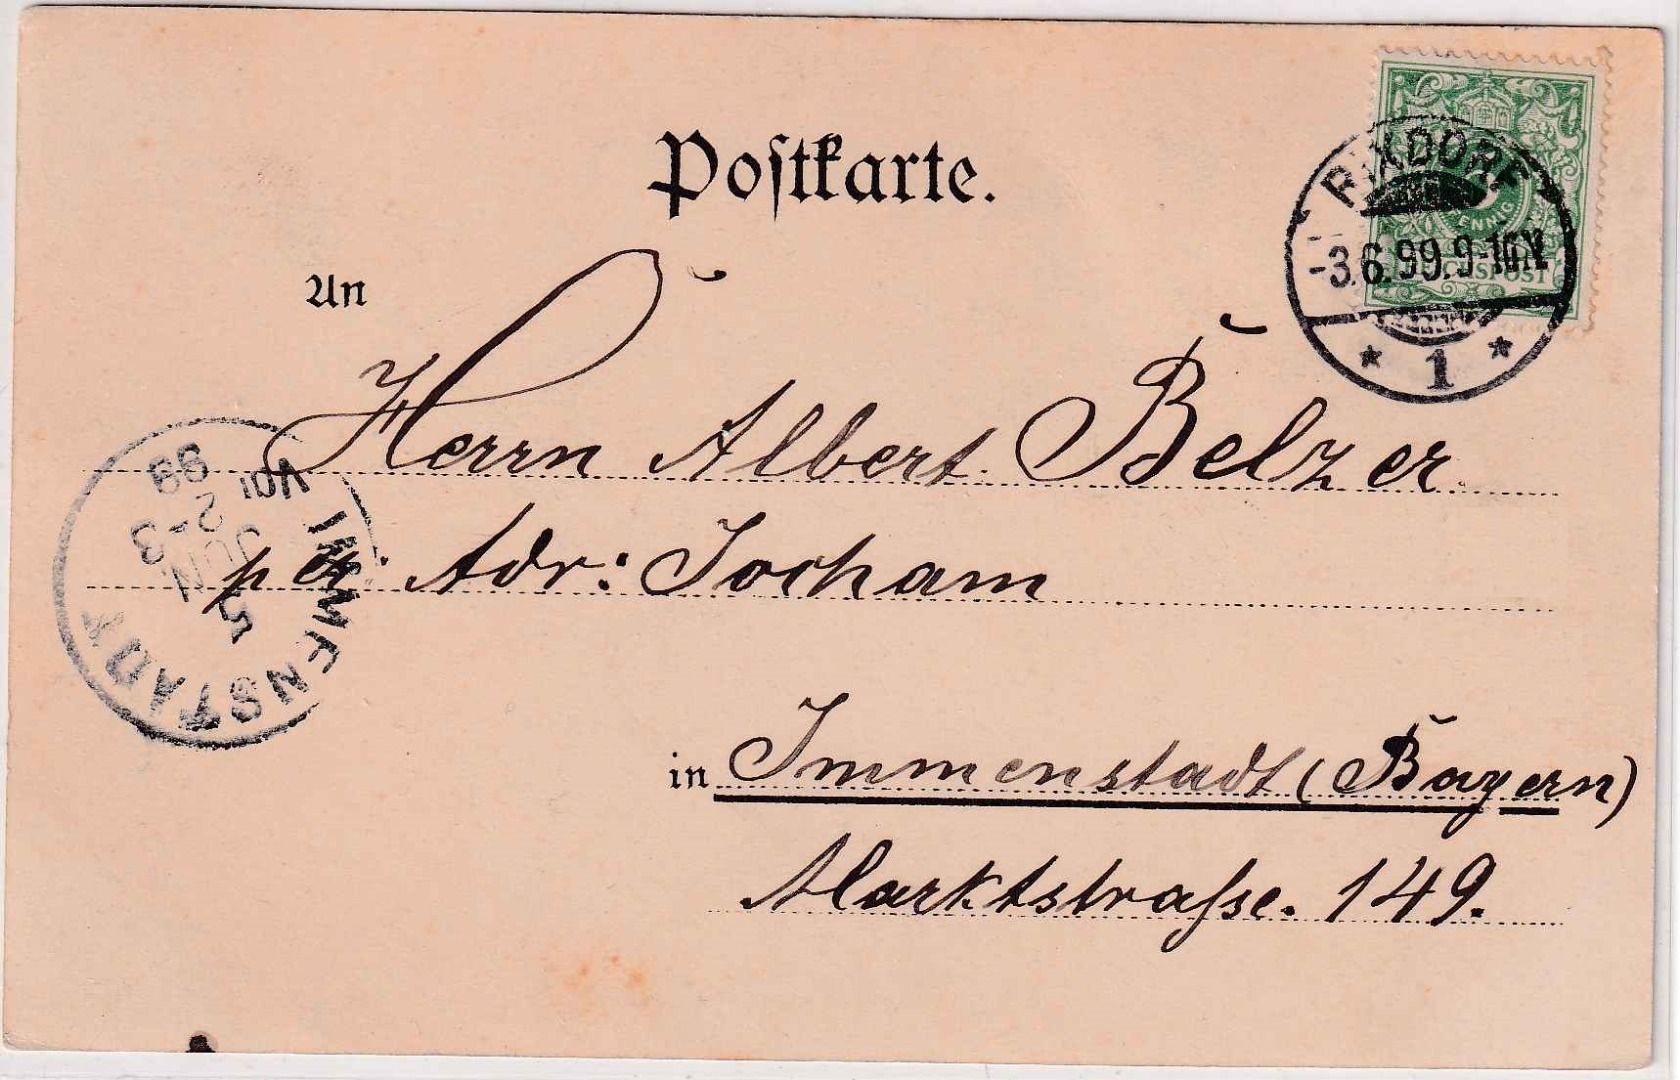 Postkarte.
RIXDORF
-3.6.99.9-10V.
* 1 *
PFENNIG
REICHSPOST
An
Herrn Albert Belzer
per Adr: Jocham
in Immenstadt (Bayern)
Marktstraße. 149.
IMMENSTADT
5
JUN
2-3
99